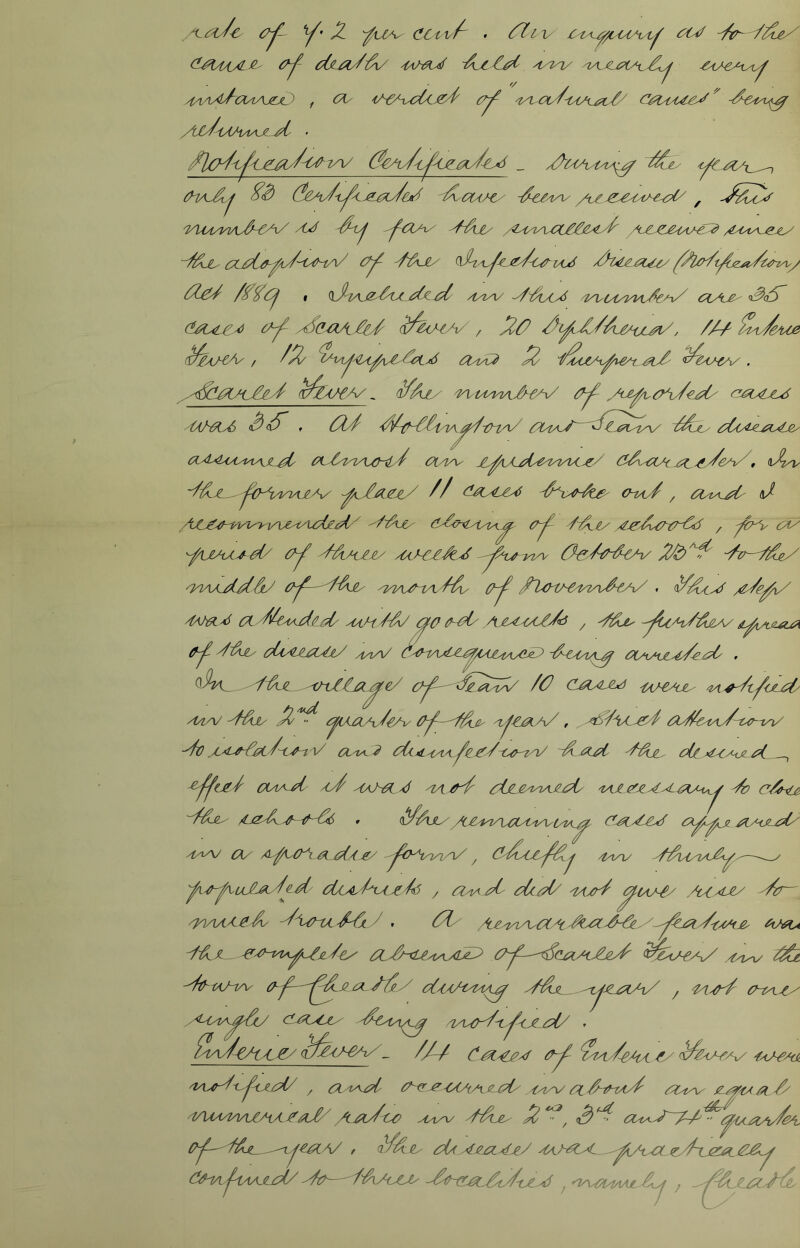 rate of 4.2 per cent . An enquiry as to the
cause of death was held in nearly every
instance , a verdict of "natural causes" being
returned .
Notification Certificates _ During the year
only 83 Certificates have been received , this
number is by far the smallest received since
the adoption of the Infectious Disease (Notification)
Act 1889 . Included in this number are 35
cases of Scarlet Fever , 20 Diphtheria , 14 Enteric
Fever , 12 Erysipelas and 2 Puerperal Fever .
Scarlet Fever _ The number of reported cases
was 35 . At Hollington and Sean the disease
assumed almost an epidemic character . In
the former place 11 cases broke out , and I
recommended the closing of the schools , for a
period of three weeks from October 23rd to the
middle of the month of November . This step
was attended with good results , the further spread
of the disease in consequence being arrested .
In the village of Sean 10 cases were notified
in the 2nd quarter of the year , strict attention
to isolation and disinfection had the desired
effect and it was not deemed necessary to close
the schools . The remaining cases appeared
in a sporadic form , chiefly in thinly
populated districts , and did not give rise to
much trouble . A remarkable feature was
the complete absence of Scarlet Fever in the
town of Cheadle during the year , not one
single case being notified .
Enteric Fever _ 14 Cases of Enteric Fever were
notified , and occurred in about an equal
numerical ratio in the 2nd, 3rd and 4th quarter
of the year , the disease was practically
confined to three localities , namely , Cheadle